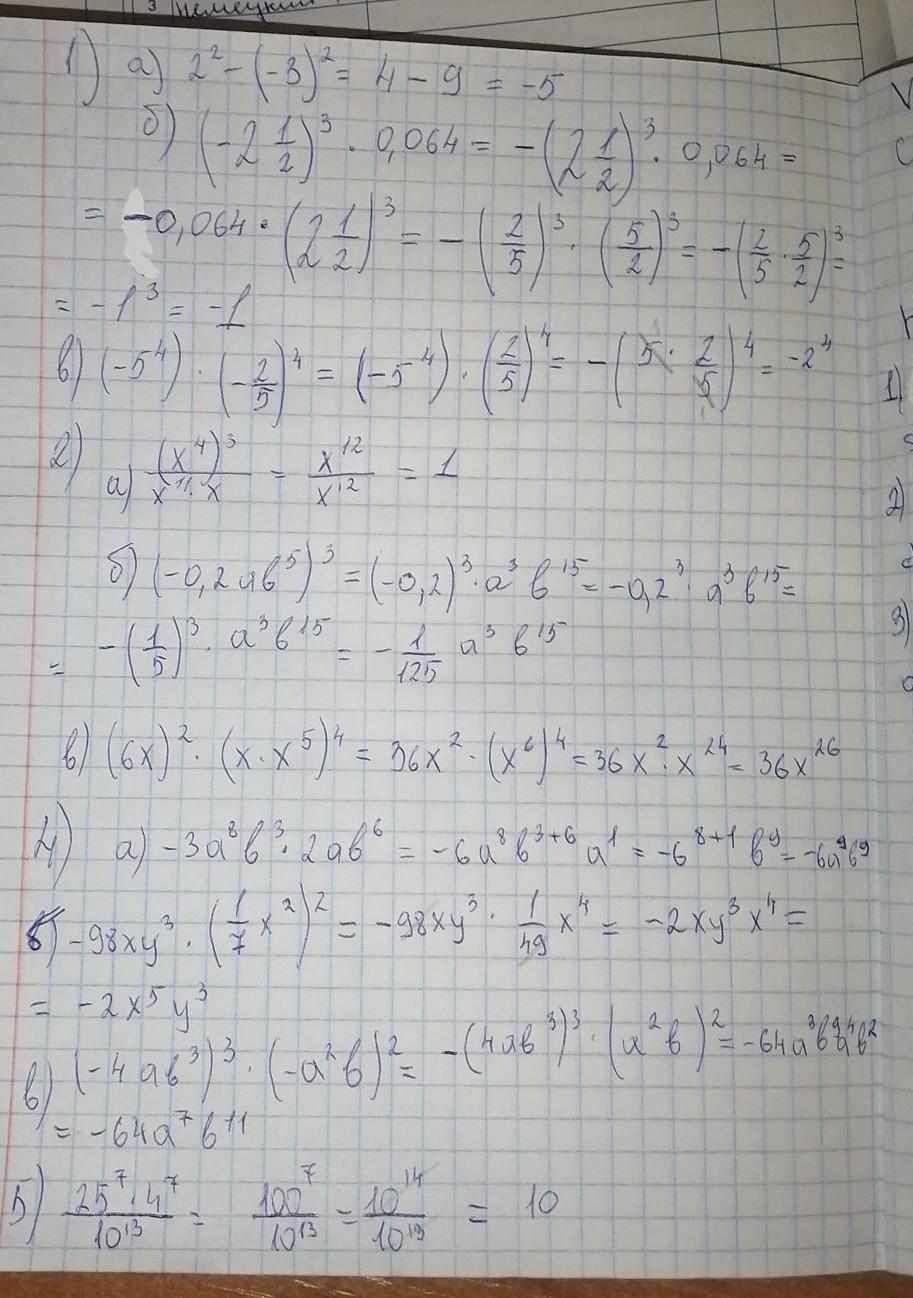 3 немецкий
1) а) 2² - (-3)² = 4 - 9 = -5
б) (-2 1/2)³ · 0,064 = -(2 1/2)³ · 0,064 =
= -0,064 · (2 1/2)³ = -(2/5)³ · (5/2)³ = -(2/5 · 5/2)³ =
= -1³ = -1
в) (-5⁴) · (-2/5)⁴ = (-5⁴) · (2/5)⁴ = -(5 · 2/5)⁴ = -2⁴
2) а) (x⁴)³/x¹¹·x = x¹²/x¹² = 1
б) (-0,2ab⁵)³ = (-0,2)³ · a³ b¹⁵ = -0,2³ · a³ b¹⁵ =
= -(1/5)³ · a³b¹⁵ = -1/125 a³ b¹⁵
в) (6x)² · (x·x⁵)⁴ = 36x² · (x⁶)⁴ = 36x² · x²⁴ = 36x²⁶
4) а) -3a⁸b³ · 2ab⁶ = -6a⁸b³⁺⁶a¹ = -6⁸⁺¹ b⁹ = -6a⁹b⁹
б) -98xy³ · (1/7 x²)² = -98xy³ · 1/49 x⁴ = -2xy³x⁴ =
= -2x⁵y³
в) (-4ab³)³ · (-a²b)² = -(4ab³)³ · (a²b)² = -64a³b⁹a⁴b²
= -64a⁷b¹¹
5) 25⁷·4⁷/10¹³ = 100⁷/10¹³ = 10¹⁴/10¹³ = 10
1)
2)
3)